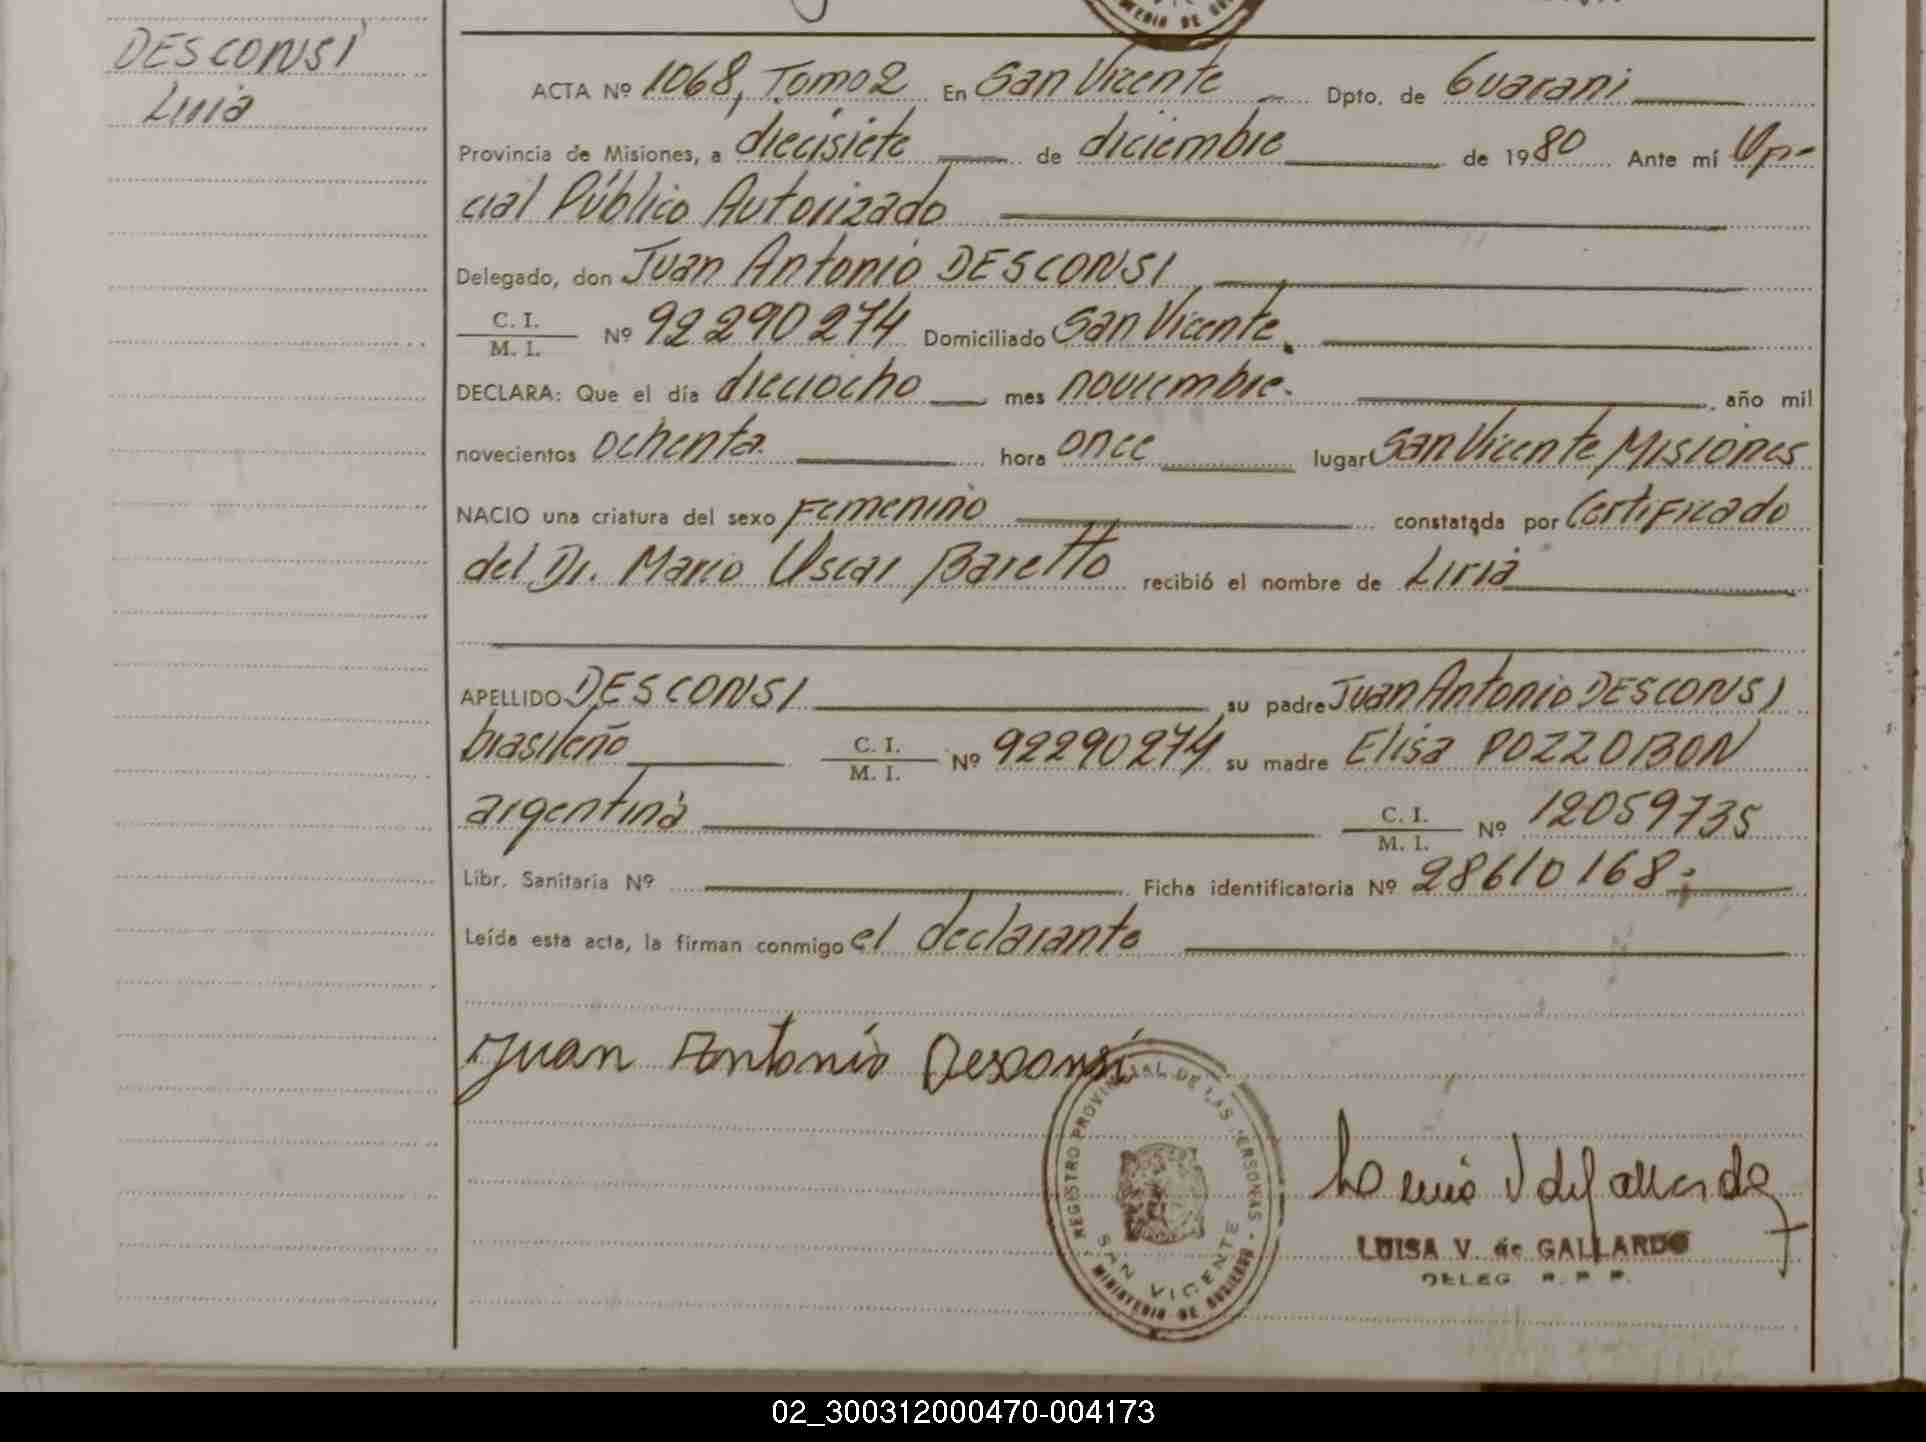 DESCONSI
Liria
ACTA Nº 1068, Tomo 2 En San Vicente Dpto. de Guarani
Provincia de Misiones, a diecisiete de diciembre de 1980 Ante mí Ofi-
cial Público Autorizado
Delegado, don Juan Antonio DESCONSI
C. I.
M. I.
Nº 92290274 Domiciliado San Vicente.
DECLARA: Que el día dieciocho mes noviembre. , año mil
novecientos ochenta. hora once lugar San Vicente Misiones
NACIO una criatura del sexo Femenino constatada por Certificado
del Dr. Mario Oscar Baretto recibió el nombre de Liria
APELLIDO DESCONSI , su padre Juan Antonio DESCONSI
brasileño C. I.
M. I.
Nº 92290274 su madre Elisa POZZOBON
argentina C. I.
M. I.
Nº 12059735
Libr. Sanitaria Nº Ficha identificatoria Nº 28610168.-
Leída esta acta, la firman conmigo el declarante
Juan Antonio Desconsi
REGISTRO PROVINCIAL DE LAS PERSONAS
SAN VICENTE
MINISTERIO DE GOBIERNO
LUISA V. de GALLARDO
DELEG. R. P. P.
02_300312000470-004173